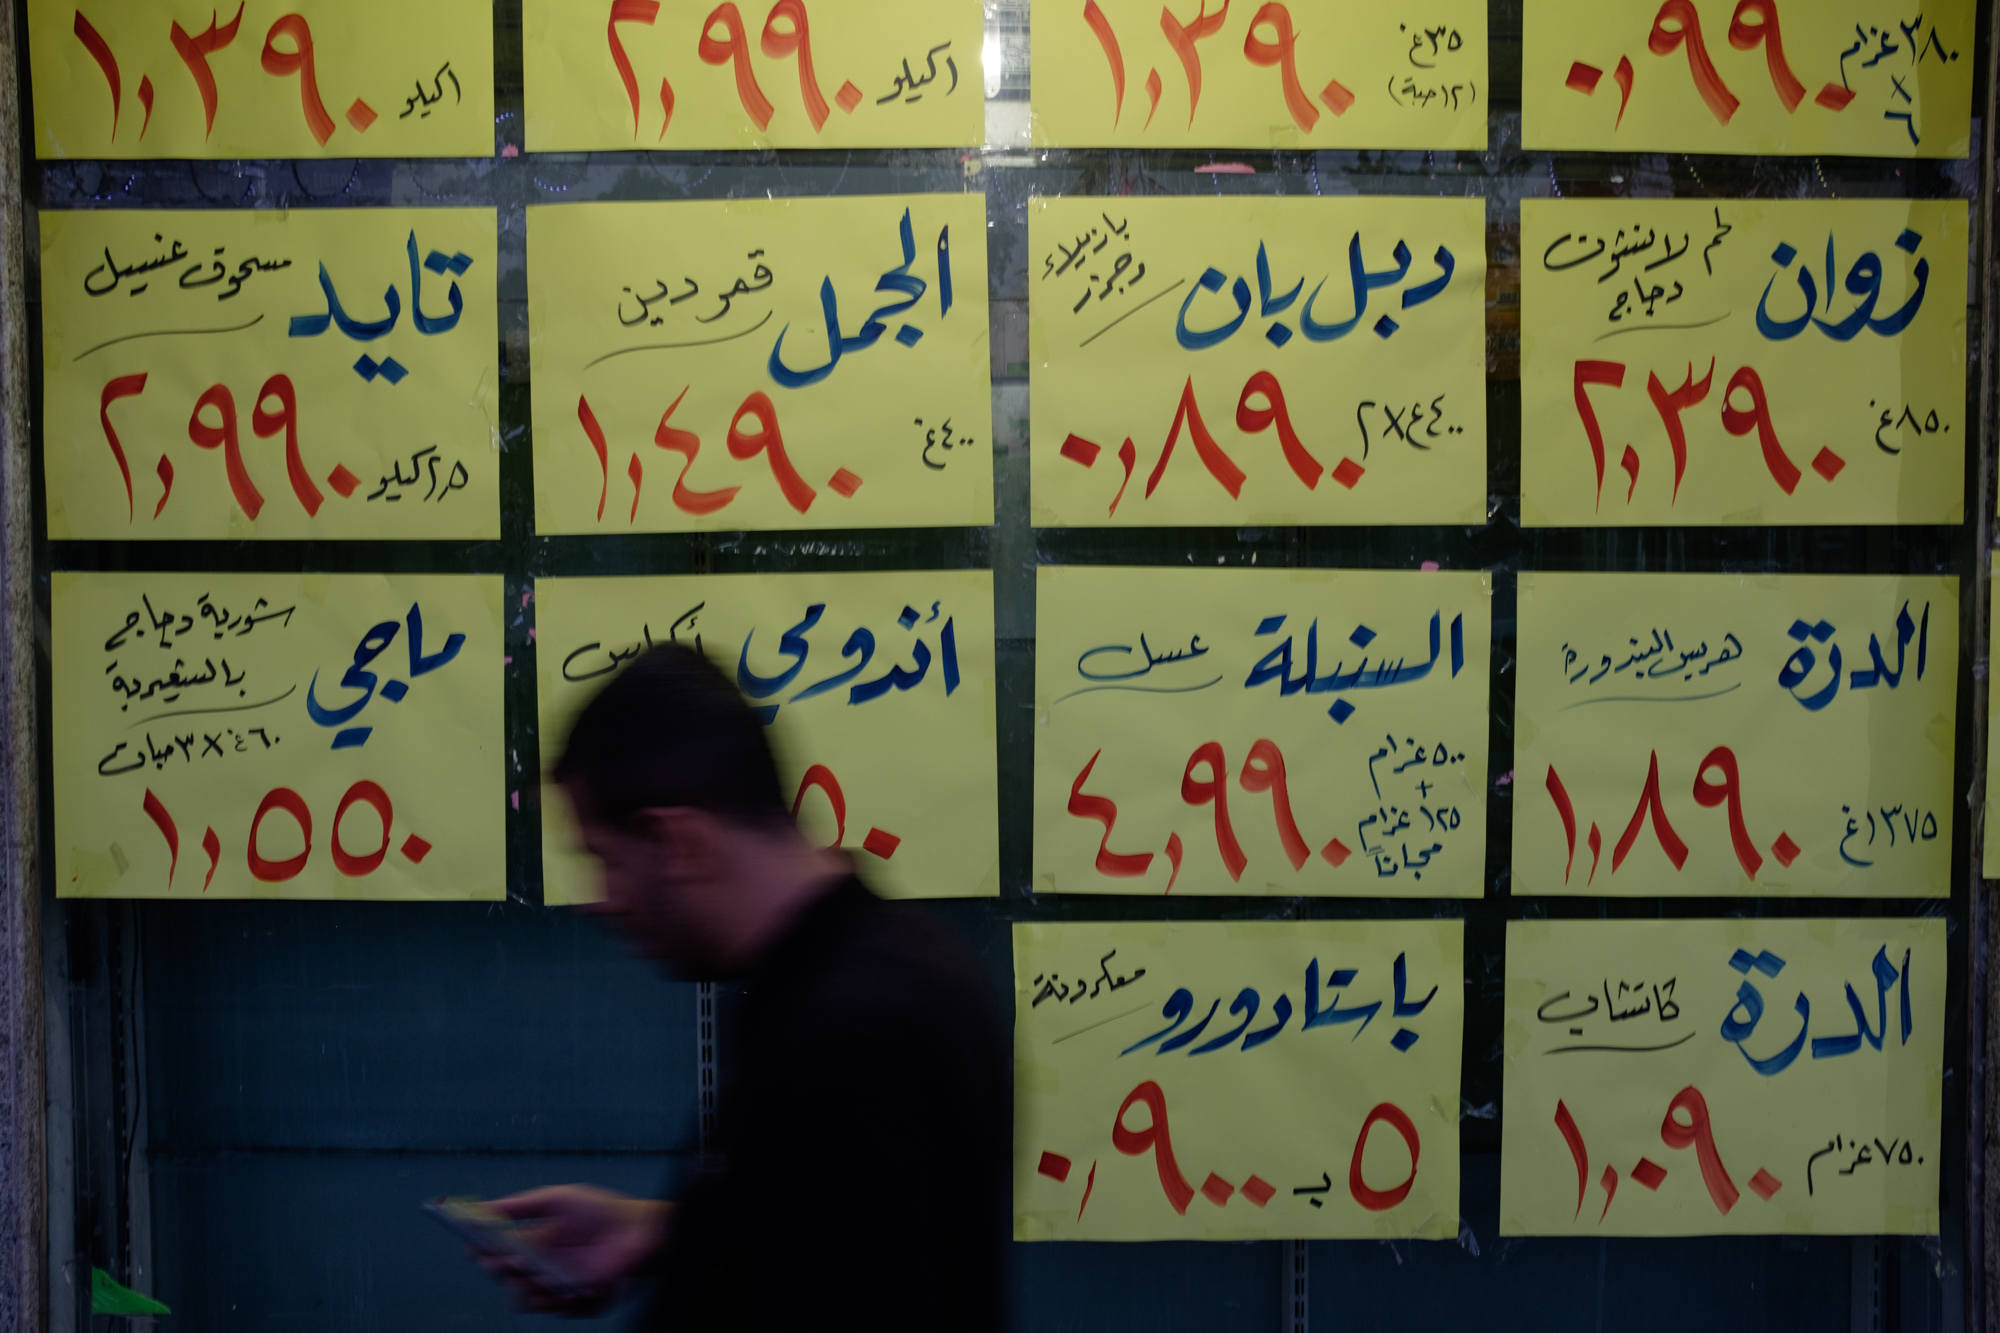 ٠,٩٩٠
٣٨٠ غرام
×
٦
١,٣٩٠
٣٥ غ
(١٢ حبة)
٢,٩٩٠
١ كيلو
١,٣٩٠
١ كيلو
زوان
لحم لانشون
دجاج
٢,٣٩٠
٨٥٠ غ
دبل بان
بازيلاء
وجزر
٠,٨٩٠
٤٠٠ غ × ٢
الجمل
قمر دين
١,٤٩٠
٤٠٠ غ
تايد
مسحوق غسيل
٢,٩٩٠
٢,٥ كيلو
الدرة
هريس البندورة
١,٨٩٠
١٣٧٥ غ
السنبلة
عسل
٤,٩٩٠
٥٠٠ غرام
+
١٢٥ غرام
مجاناً
أندومي
أكياس
٥٠
ماجي
شوربة دجاج
بالشعيرية
٦٠ غ × ٣ حبات
١,٥٥٠
الدرة
كاتشاب
١,٠٩٠
٧٥٠ غرام
باستا دورو
معكرونة
٥ بـ ٠,٩٠٠